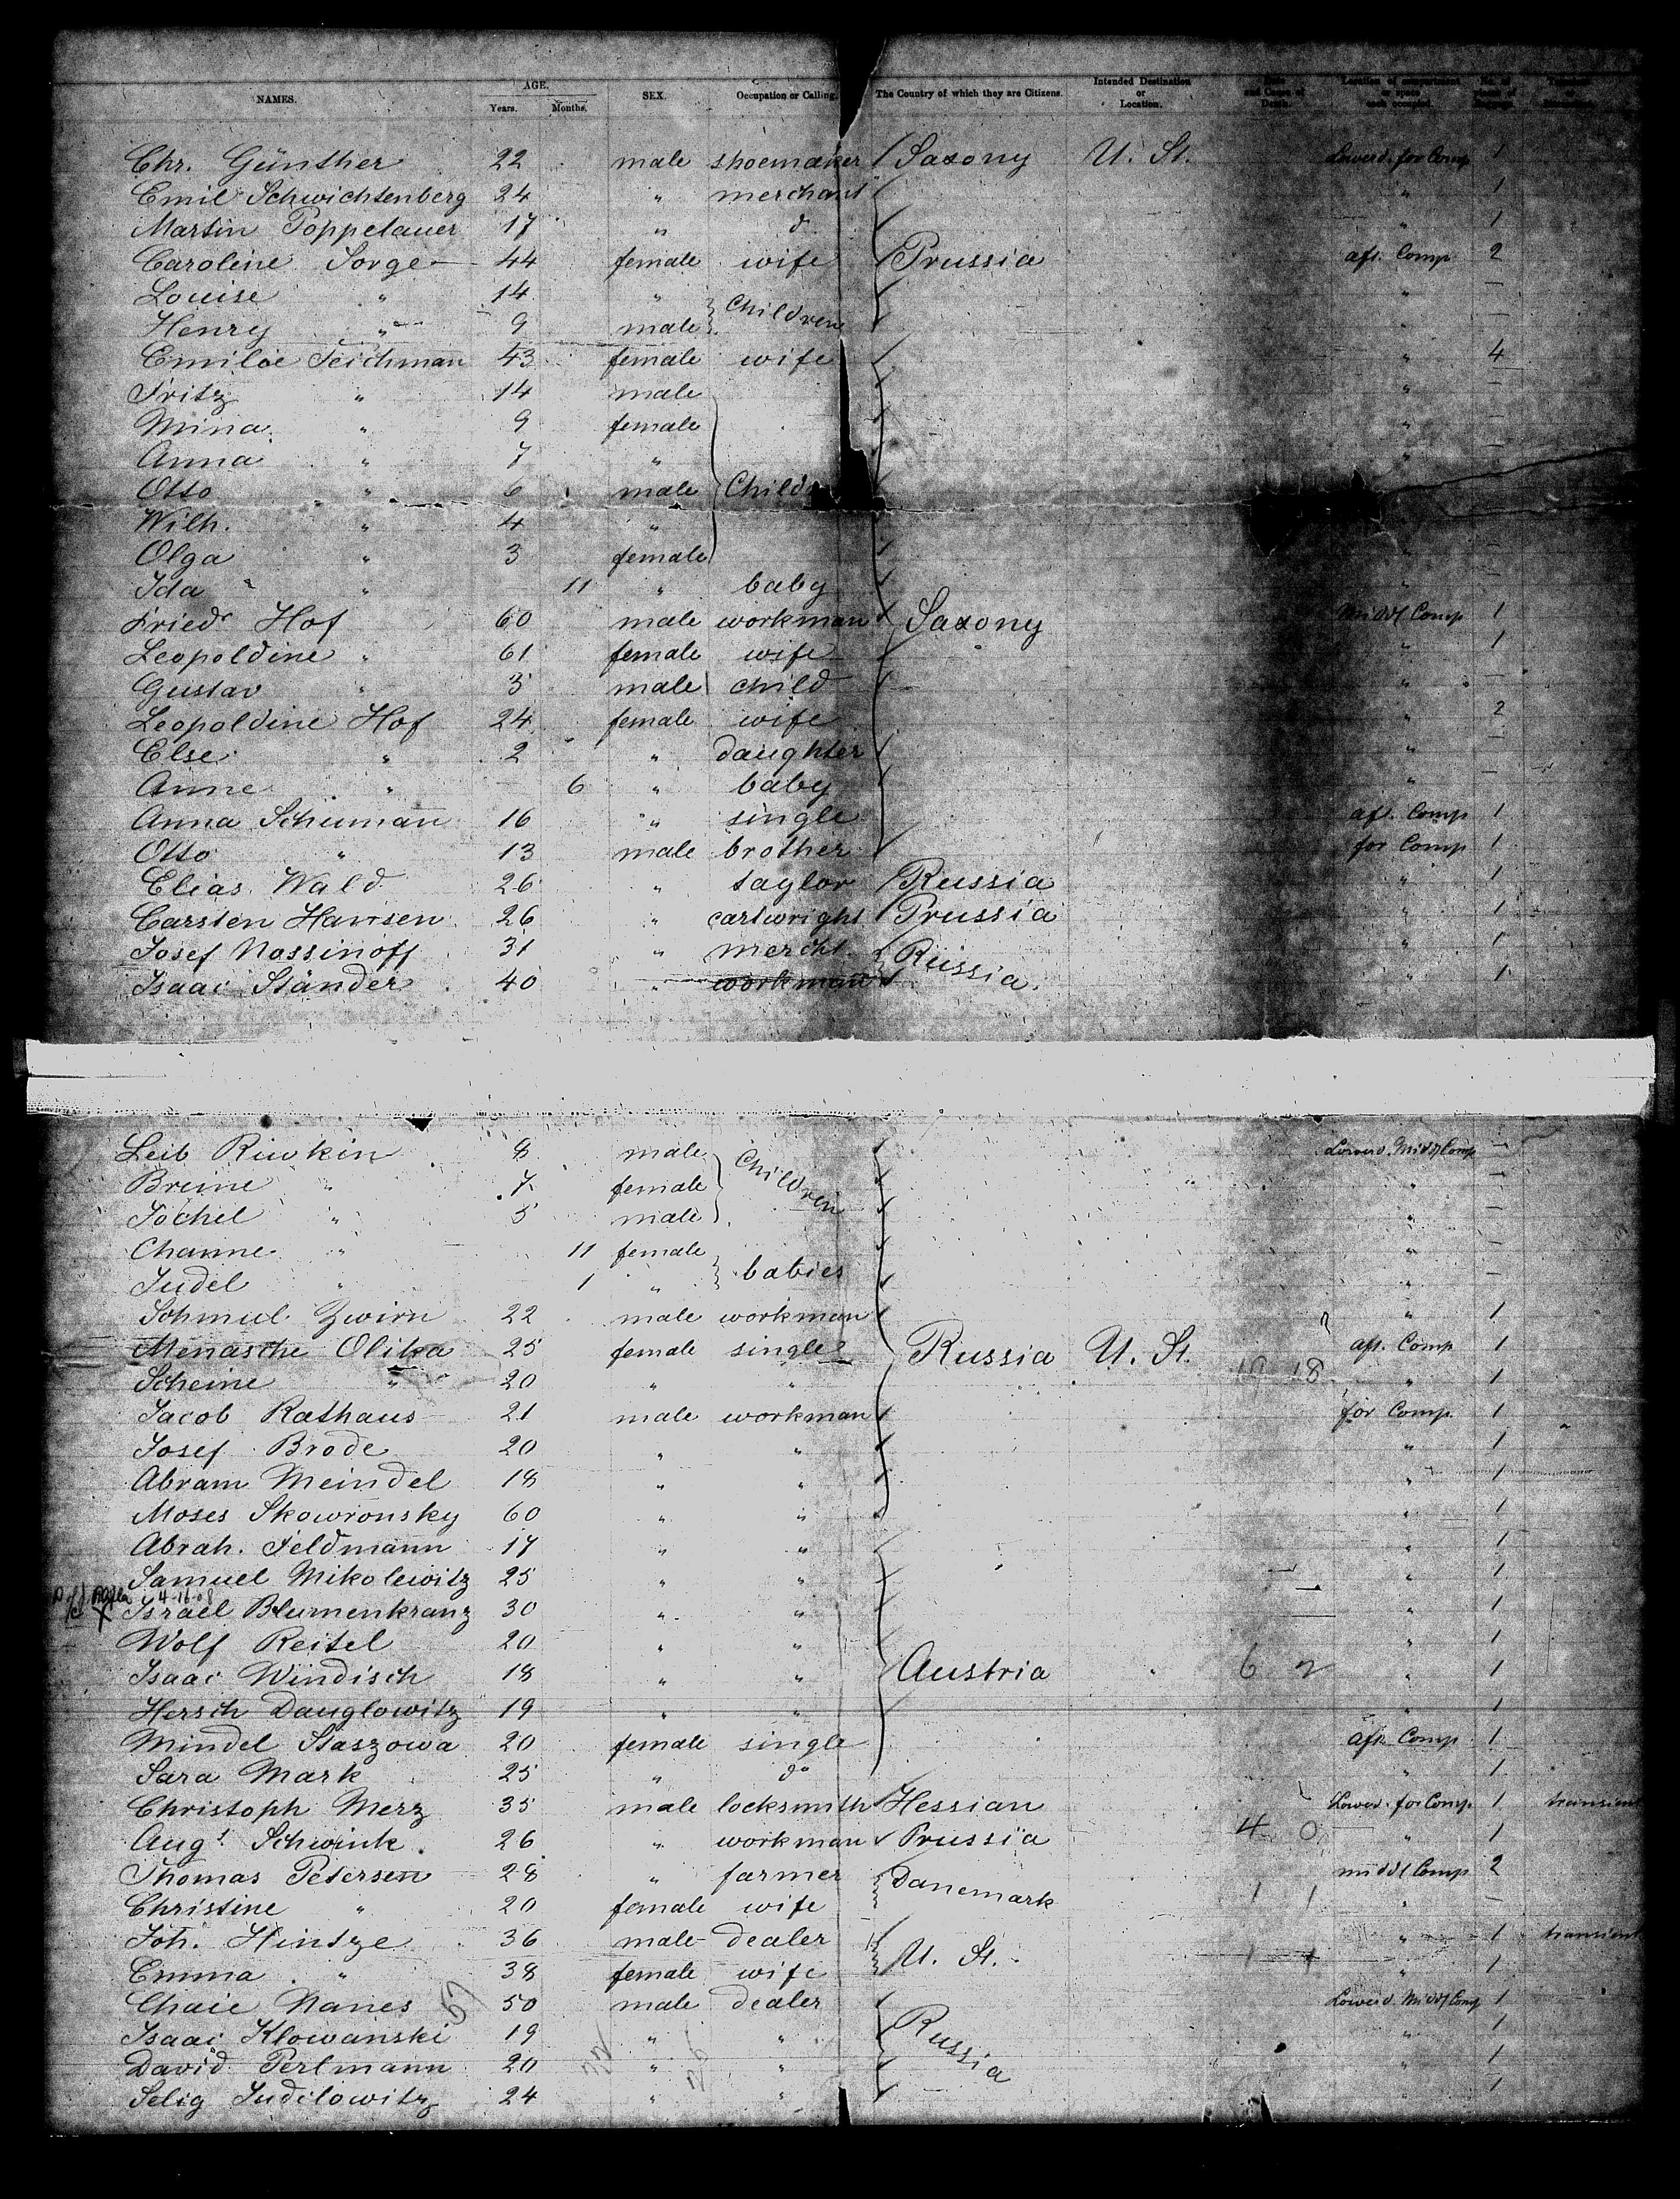 NAMES. AGE. Years. Months. SEX. Occupation or Calling. The Country of which they are Citizens. Intended Destination or Location. Date and Cause of Death. Location of compartment or space each occupied. No. of pieces of Baggage.
Chr. Günther 22 male shoemaker Saxony U. St. Lowerd. for Comp 1
Emil Schwichtenberg 24 " merchant " 1
Martin Poppelauer 17 " do " 1
Caroline Sorge 44 female wife Prussia aft. Comp 2
Louise " 14 " Children " —
Henry " 9 male " —
Emilie Teichman 43 female wife " 4
Fritz " 14 male " —
Mina " 9 female " —
Anna " 7 " " —
Otto " 6 male
Wilh. " 4 "
Olga " 3 female " —
Ida " 11 " baby " —
Friedr Hof 60 male workman Saxony Middl Comp 1
Leopoldine " 61 female wife " 1
Gustav " 5 male child " —
Leopoldine Hof 24 female wife " 2
Else " 2 " daughter " —
Anne " 6 " baby " —
Anna Schuman 16 " single aft. Comp 1
Otto " 13 male brother for Comp 1
Elias Wald 26 " taylor Russia " 1
Carsten Hansen 26 " cartwright Prussia " 1
Josef Nossinoff 31 " mercht. Russia. " 1
Isaac Ständer 40 " workman " 1
Leib Riwkin 8 male Children Lowerd. Middl Comp —
Breine " 7 female " —
Jochel " 5 male " —
Channe " 11 female babies " —
Judel " 1 " " —
Schmul Zwirn 22 male workman " 1
Menasche Olika 25 female single Russia U. St. aft. Comp 1
Scheine " 20 " " 19 18 " 1
Jacob Rathaus 21 male workman for Comp. 1
Josef Brode 20 " " " 1
Abram Meindel 18 " " " 1
Moses Skowronsky 60 " " " 1
Abrah. Feldmann 17 " " " 1
Samuel Mikolewitz 25 " " " 1
4-16-08
X Israel Blumenkranz 30 " " " 1
Wolf Reitel 20 " " " 1
Isaac Windisch 18 " " Austria 6 2 " 1
Hersch Dauglowitz 19 " " " 1
Mindel Staszowa 20 female single aft. Comp 1
Sara Mark 25 " do " 1
Christoph Merz 35 male locksmith Hessian Lowerd. for Comp. 1 transient
Augt Schwink. 26 " workman Prussia 4 0 " 1
Thomas Petersen 28 " farmer Danemark middl Comp 2
Christine " 20 female wife 1 1 " —
Joh. Hintze 36 male dealer U. St. " 1 transient
Emma " 38 female wife 1 1 " 1
Chaie Nanes 50 male dealer Russia Lowerd Middl Comp 1
Isaac Klowanski 19 " " " 1
David Perlmann 20 " " " 1
Selig Judelowitz 24 " " " 1